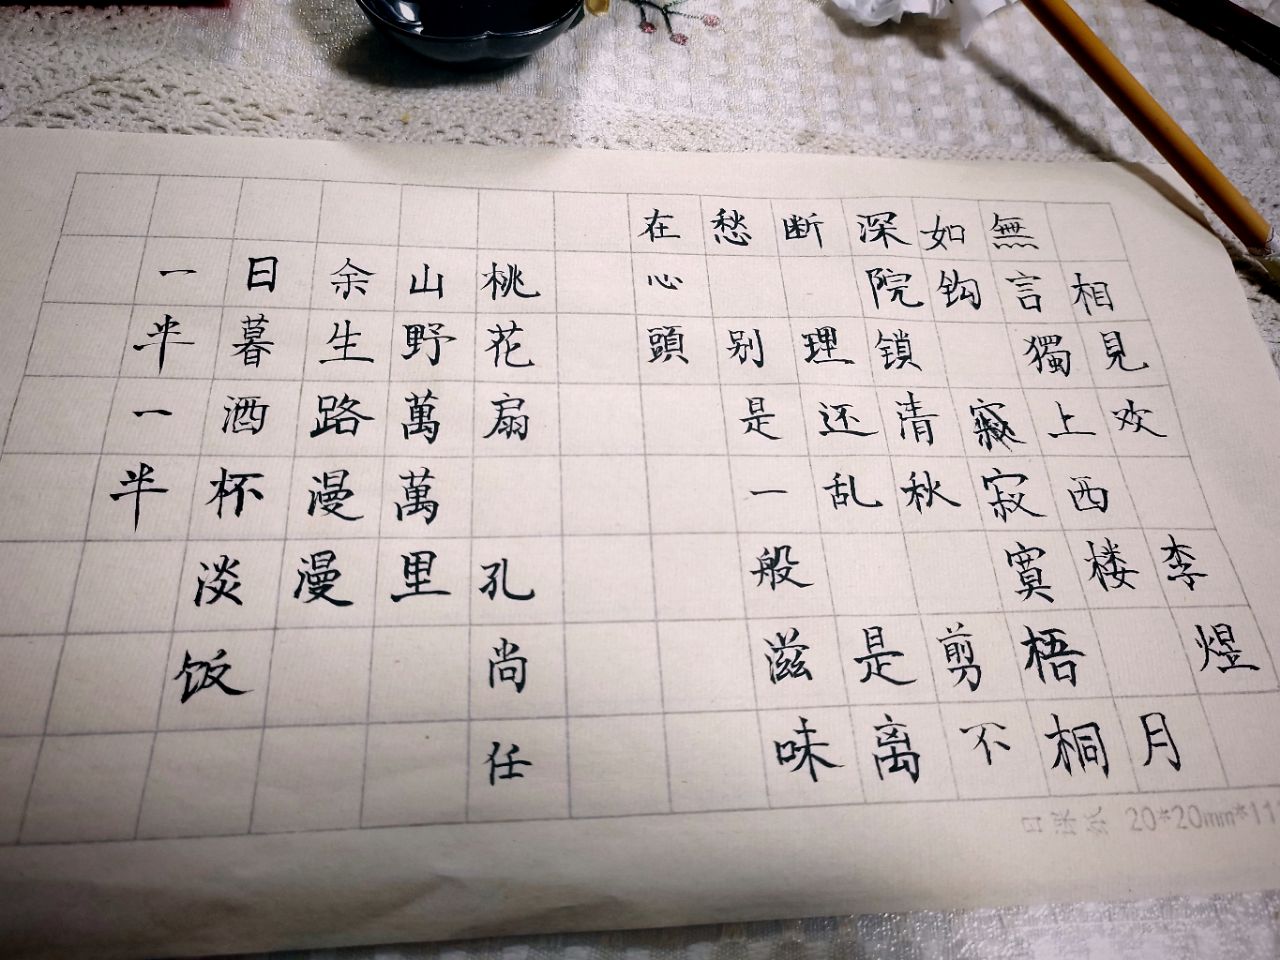 相見欢 李煜
無言獨上西楼 月
如钩 寂寞梧桐
深院锁清秋 剪不
断 理还乱 是离
愁 别是一般滋味
在心頭
桃花扇 孔尚任
山野萬萬里
余生路漫漫
日暮酒杯淡饭
一半一半
20*20mm*11